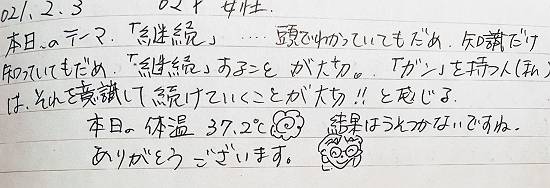 021.2.3 024 女性.
本日のテーマ.「継続」‥‥頭でわかっていてもだめ.知識だけ
知っていてもだめ.「継続」することが大切。「ガン」を持つ人(私)
は、それを意識して続けていくことが大切!!と感じる.
本日の体温 37.2℃ 結果はうそつかないですね.
ありがとうございます。